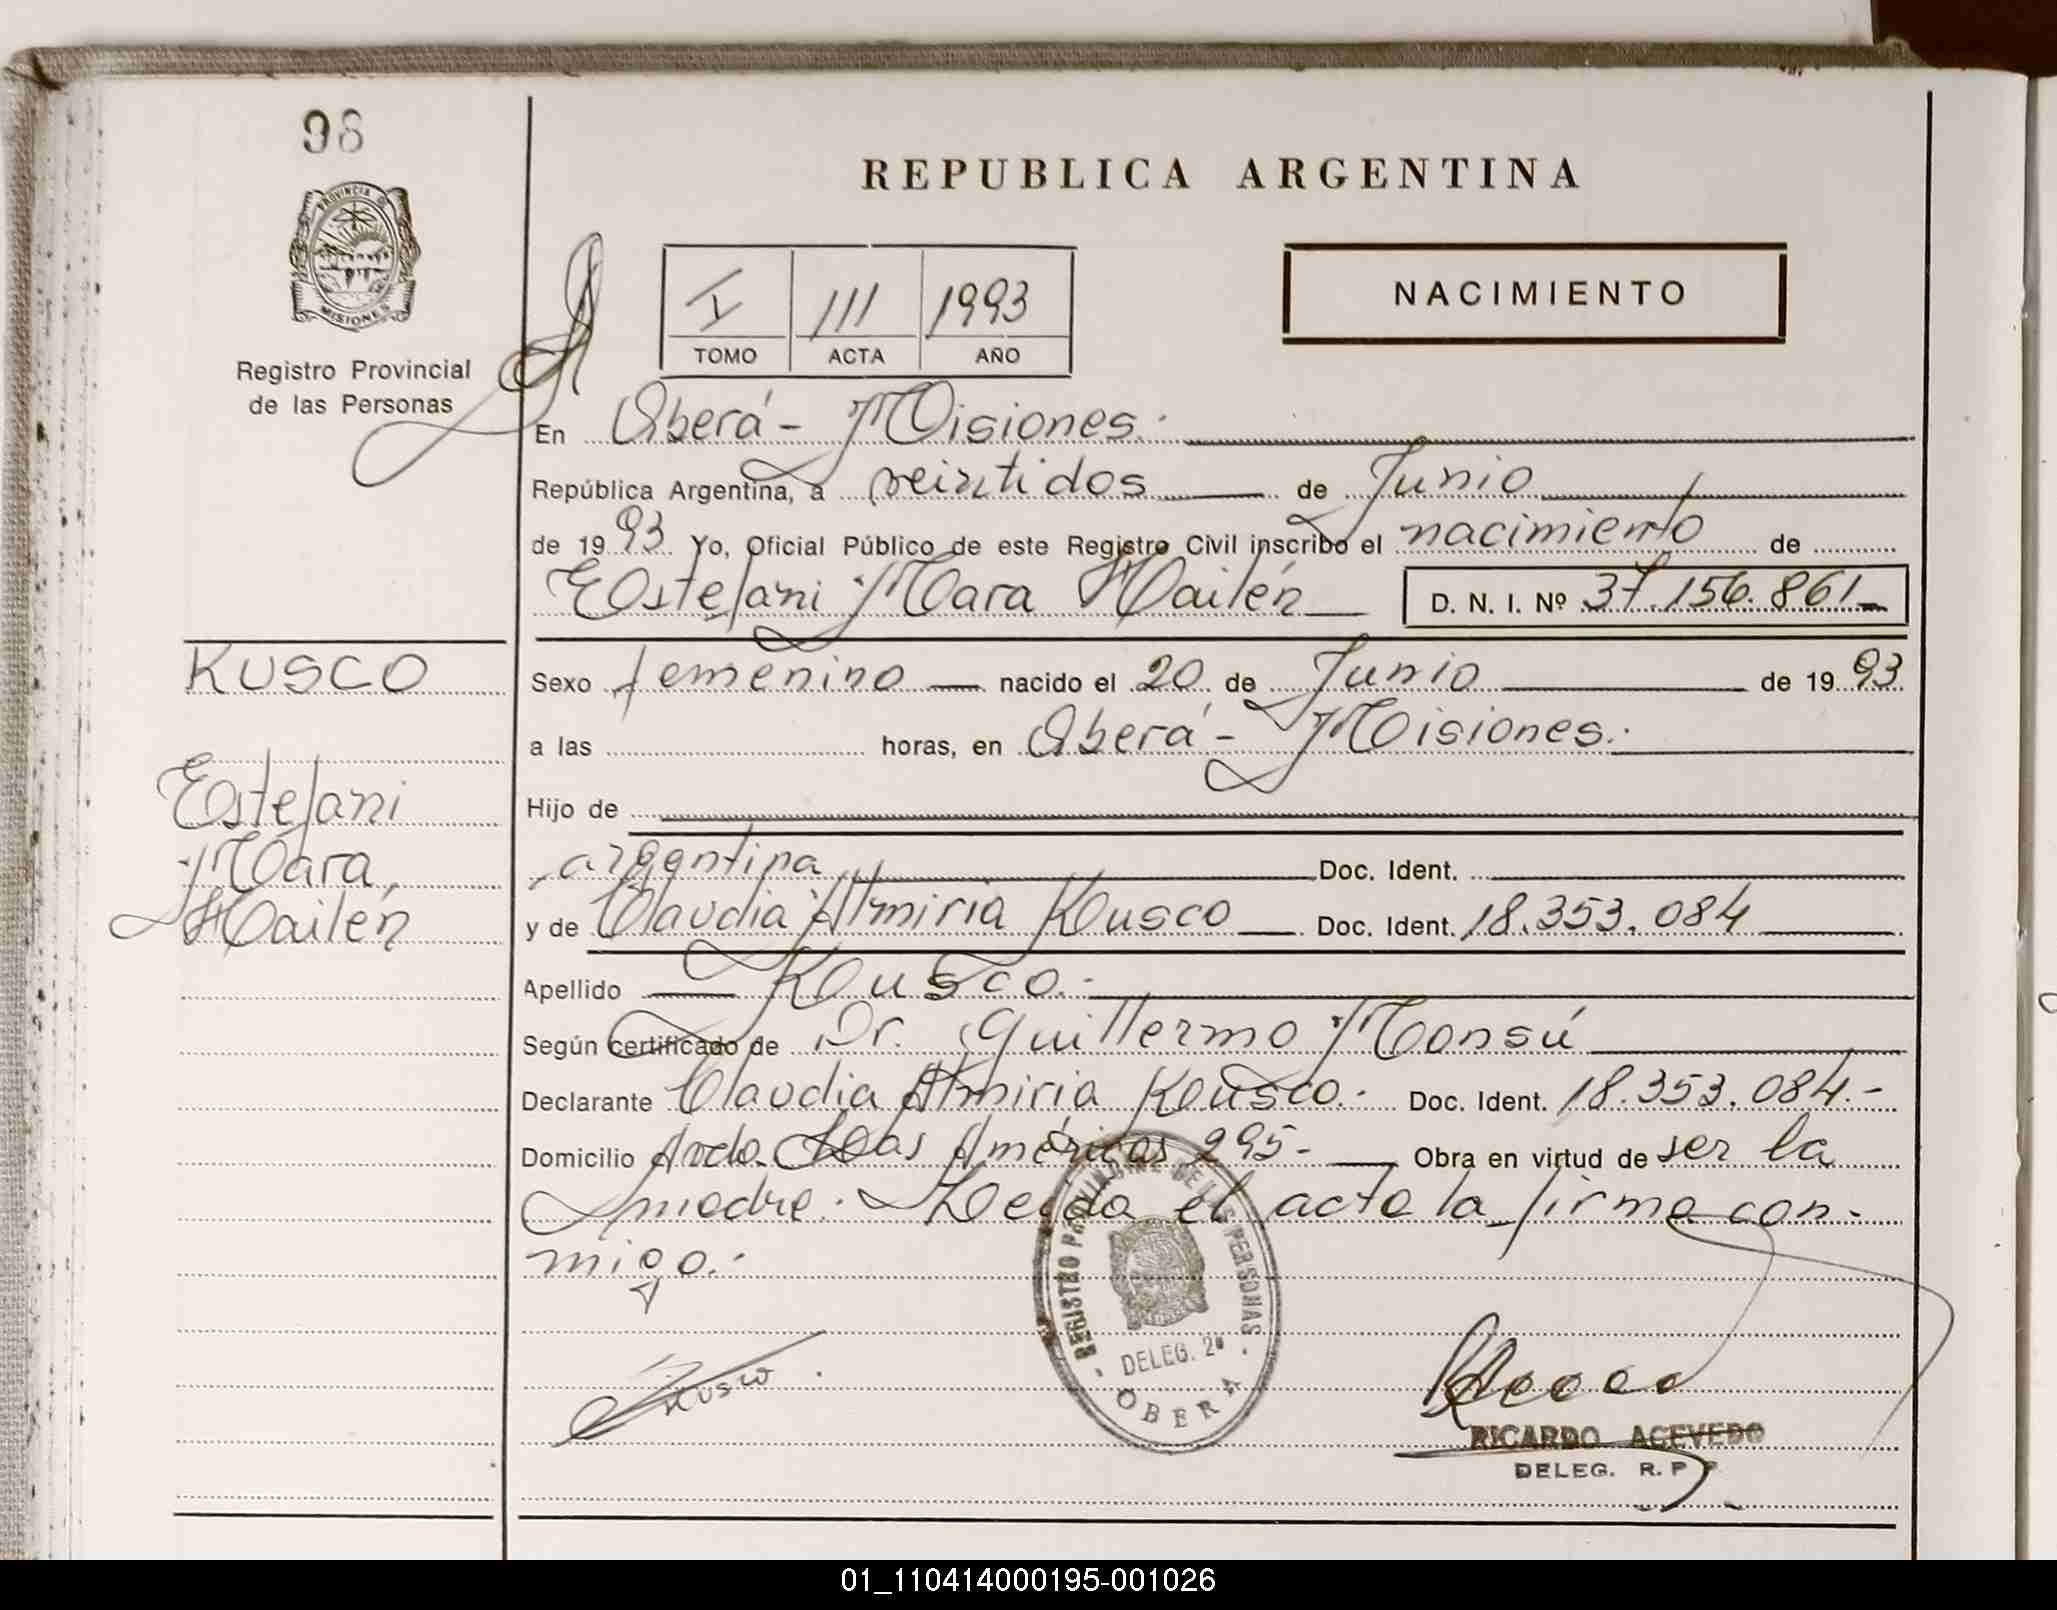 98
REPUBLICA ARGENTINA
PROVINCIA DE
MISIONES
Registro Provincial
de las Personas
I 111 1993
TOMO ACTA AÑO
NACIMIENTO
En Oberá - Misiones.-
República Argentina, a veintidos de Junio
de 1993 Yo, Oficial Público de este Registro Civil inscribo el nacimiento de
Estefani Mara Mailén D. N. I. Nº 37.156.861
KUSCO
Sexo femenino nacido el 20 de Junio de 1993
a las horas, en Oberá - Misiones.-
Estefani
Mara
Mailén
Hijo de
argentina Doc. Ident.
y de Claudia Almiria Kusco Doc. Ident. 18.353.084
Apellido Kusco.-
Según certificado de Dr. Guillermo Monsú
Declarante Claudia Almiria Kusco.- Doc. Ident. 18.353.084.-
Domicilio Avda. Las Américas 295- Obra en virtud de ser la
madre.- Leída el acta la firma con-
migo.-
REGISTRO PROVINCIAL DE LAS PERSONAS
DELEG. 2ª
OBERA
Kusco
RICARDO ACEVEDO
DELEG. R. P. P.
01_110414000195-001026